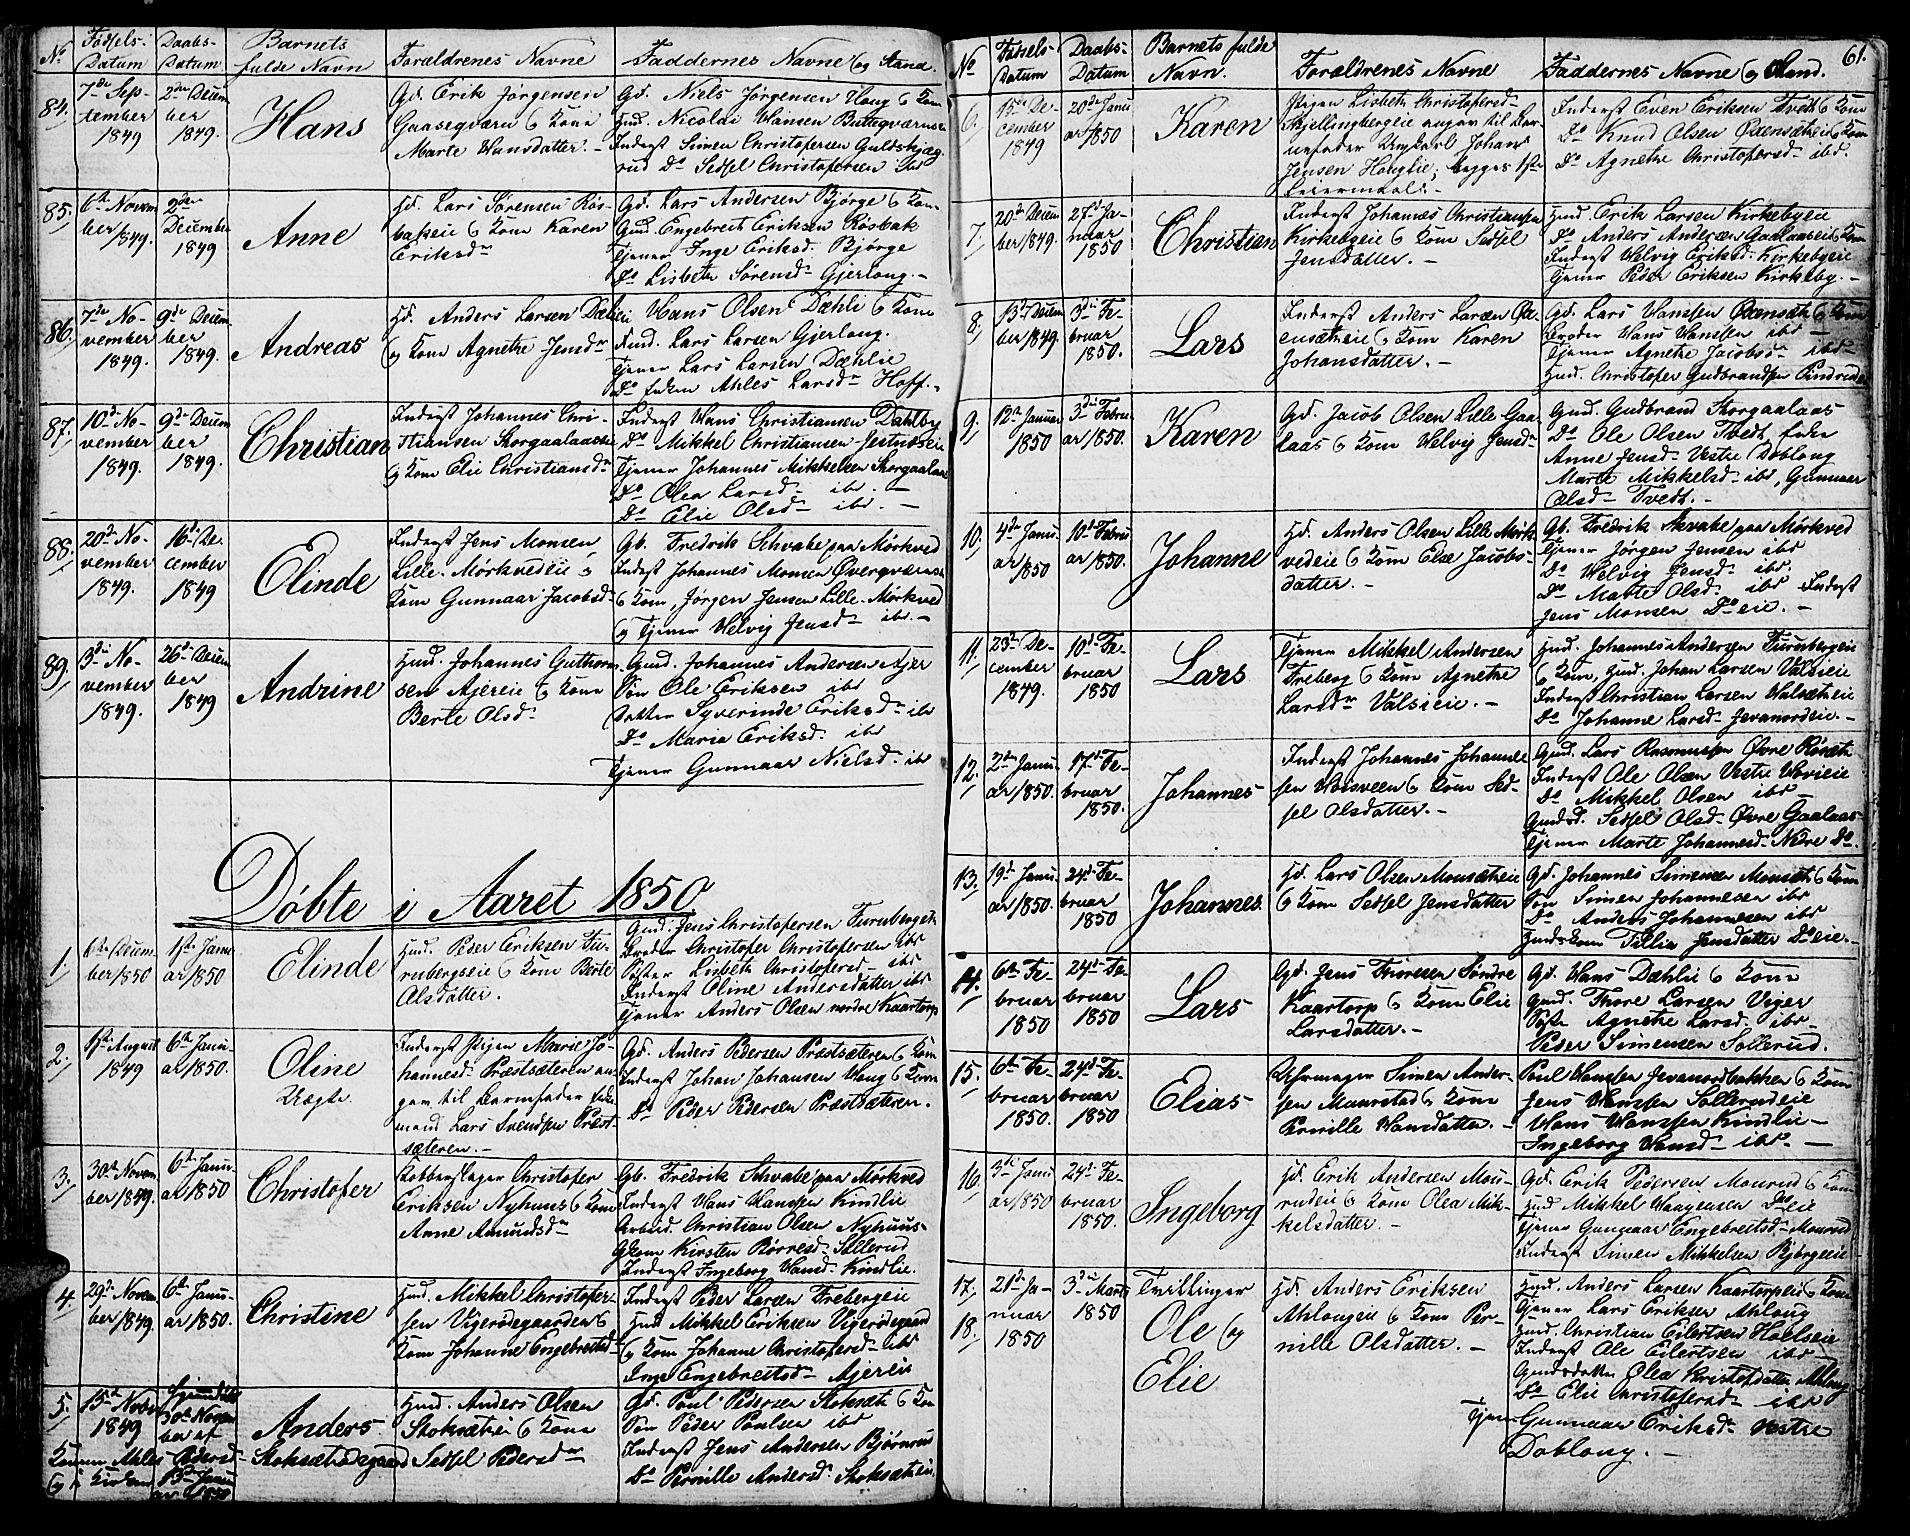 No
Fødsels-
Datum
Daabs-
Datum
Barnets
fulde Navn
Forældrenes Navne
Faddernes Navne og Stand.
84.
7de Sep-
tember
1849
2den Decem
ber
1849.
Hans
Gd. Erik Jørgensen
Gaaseqværn & Kone
Marte Hansdatter. -
Gd. Niels Jørgensen Houg & Kone
Hmd. Nicolai Hansen
Inderst Simen Christofersen
rud Do Sidsel Christofersen
85.
6te Novem
ber 1849.
2den
December
1849
Anne
Hd. Lars Sørensen Røs-
bakeie & Kone Karen
Eriksdr
Gd. Lars Andersen Bjørge & Kone
Gmd. Engebret Eriksen Røsbak
Tjener Inge Eriksd. Bjørge
Do Lisbeth Sørensd. Gjerlong. -
86.
7de No-
vember
1849.
9de Decem
ber
1849.
Andreas
Hd. Anders Larsen Dæhlieie
og Kone Agnethe Jensdr
Hans Olsen Dæhli & Kone
Hmd. Lars Larsen Gjerlong.
Tjener Lars Larsen Dæhlie
Do Enken Ahles Larsd. Hoff. -
87.
10de No-
vember
1849.
9de Decem
ber
1849.
Christian
Inderst Johannes Chri-
stiansen Storgaalaaseie
og Kone Elie Christiansdr
Inderst Hans Christiansen Dahlby
Do Mikkel Christiansen Jestnæseie
Tjener Johannes Mikkelsen Storgaalaas
Do Olea Larsd. ibd. -
Do Elie Olsd. ibd. -
88.
20de No-
vember
1849.
16de De-
cember
1849
Elinde
Inderst Jens Monsen
Lille-Mørkvedeie &
Kone Gunnaar Jacobsd.
Gb. Fredrik Schvabe paa Mørkved
Inderst Johannes Monsen Øvergværnseie
& Kone, Jørgen Jensen Lille-Mørkved
og Tjener Helvig Jensd. ibd. -
89.
3die No-
vember
1849.
26de Decem
ber
1849
Andrine
Hmd. Johannes Guthorm-
sen Ajereie & Kone
Berte Olsd.
Gmd. Johannes Andersen Ajer
Søn Ole Eriksen ibd
Datter Syverinde Eriksd. ibd
Do Maria Eriksd. ibd
Tjener Gunnaar Nielsd. ibd
Døbte i Aaret 1850
1.
6te Decem-
ber 1850
1ste Janu-
ar 1850
Elinde
Hmd. Peder Eriksen Fu-
rubergseie & Kone Berte
Olsdatter.
Gmd. Jens Christofersen Furuberget
Broder Christofer Christofersen ibd
Søster Lisbeth Christofersd. ibd
Inderst Oline Andersdatter ibd
Tjener Anders Olsen nordre Kaartorp
2.
1ste August
1849
6te Janu-
ar 1850.
Oline
Uægte.
Inderst Pigen Marie Jo-
hannesd. Præstsæteren an-
gav til Barnefader Enke-
mand Lars Svendsen Præst-
sæteren. -
Gd. Anders Pedersen Præstsæteren & Kone
Inderst Johan Johansen Houg & Kone
Do Peder Pedersen Præstsæteren. -
3.
30te Novem
ber 1849.
6te Janu-
ar 1850
Christofer
Kobberslager Christofer
Eriksen Nyhuus & Kone
Anne Amundsdr
Gb. Fredrik Schvabe paa Mørkved
Inderst Hans Hanssen Kindlie
Arbeid. Christian Olsen Nyhuus-
Gkone Kirsten Børresd. Sollerud
Inderst Ingeborg Hansd. Kindlie.
4.
29de Novem
ber 1849.
6te Janu-
ar 1850.
Christine
Hmd. Mikkel Christofer-
sen Vigerødegaarden &
Kone Johanne Engebretsd.
Inderst Peder Larsen Frebergeie
Hmd Mikkel Eriksen Vigerødegaard
og Kone Johanne Christofersd. ibd
Inge Engebretsd. Ajereie
5.
15de Novbr
1849
Hjemmedøbt
30te Novem
ber af
Konen Ahles Pedersd.
Stoksætødegaard
og i Kirken
13de Janu
ar 1850
Anders
Hmd. Anders Olsen
Stoksætheie & Kone
Sidsel Pedersdr
Gd. Poul Pedersen Stoksæth & Kone
Søn Peder Poulsen ibd
Inderst Jens Andersen Bjørnrud
Do Pernille Andersd. Stoksætheie
61.
No
Fødsels-
Datum
Daabs-
Datum
Barnets fulde
Navn.
Forældrenes Navne
Faddernes Navne og Stand.
6.
15de De-
cember
1849
20de Janu
ar 1850
Karen
Pigen Lisbeth Christofersd.
Skjellingbergeie angav til Bar-
nefader Ungkarl Johan
Jensen Hougeie; begges 1ste
Leiermaal. -
Inderst Even Eriksen Tvedt & Kone
Do Knud Olsen Oxensætheie & Kone
Do Agnethe Christofersd. ibd.
7.
20de Decem
ber 1849.
27de Ja-
nuar
1850
Christian
Inderst Johannes Christiansen
Kirkebyeie & Kone Sidsel
Jensdatter. -
Hmd. Erik Larsen Kirkebyeie
Do Anders Andersen Gaalaaseie & Kone
Inderst Helvig Eriksd. Kirkebyeie
Tjener Peder Eriksen Kirkeby. -
8.
13de Decem
ber 1849.
3die Fe-
bruar
1850.
Lars
Inderst Anders Larsen Ox-
ensætheie & Kone Karen
Johansdatter. -
Gd. Lars Hanssen Oxensæth & Kone
Broder Hans Hanssen ibd -
Tjener Agnethe Jacobsd. ibd -
Hmd. Christofer Gudbrandsen
9.
12te Januar
1850
3die Febru
ar 1850.
Karen
Gd. Jacob Olsen Lille Gaa-
laas & Kone Helvig Jensdr
Gmd. Gudbrand Storgaalaas
Do Ole Olsen Tvedt Enke
Anne Jensd. Vestre Doblong
Marte Mikkelsd. ibd, Gunnaar
Olsd. Tvedt. -
10.
4de Janu-
ar 1850
10de Febru
ar 1850.
Johanne
Hd. Anders Olsen Lille Mørk-
vedeie & Kone Else Jacobs-
datter. -
Gb. Fredrik Schvabe paa Mørkved
Tjener Jørgen Jensen ibd
Do Helvig Jensd. ibd.
Do Marte Olsd. ibd Inderst
Jens Monsen Doeie. -
11.
23de De-
cember
1849.
10de Fe-
bruar
1850
Lars
Tjener Mikkel Andersen
Freberg & Kone Agnethe
Larsdr Valsieie. -
Hmd. Johannes Andersen Furubergeie
& Kone, Hmd. Johan Larsen Valsieie
Inderst Christian Larsen Valsætheie
Do Johanne Larsd. Jevanordeie. -
12.
2den Janu-
ar 1850.
17de Fe-
bruar
1850.
Johannes
Inderst Johannes Johannes-
sen Hoisveen & Kone Sid-
sel Olsdatter. -
Gmd. Lars Rasmussen Øvre Røsæth
Inderst Ole Olsen Vestre Hovieie
Do Mikkel Olsen ibd -
Gmdsd. Sidsel Olsd. Øvre Gaalaas-
Tjener Marte Johannesd. Nedre Do.
13.
19de Janu-
ar 1850.
24de Fe-
bruar
1850
Johannes.
Hd. Lars Olsen Monsætheie
& Kone Sidsel Jensdatter
Gd. Johannes Simensen Monsæth & Kone
Søn Simen Johannesen ibd
Do Anders Johannesen ibd
Hmdskone Tillia Jensdatter Doeie. -
14.
6te Fe-
bruar
1850
24de Fe-
bruar
1850
Lars
Gd. Jens Thoresen Søndre
Kaartorp & Kone Elie
Larsdatter. -
Gd. Hans Dæhlie & Kone
Gmd. Thore Larsen Viger
Søster Agnethe Larsd. ibd -
Peder Simensen Sollerud.
15.
6te Fe-
bruar
1850.
24de Fe-
bruar
1850
Elias
Uhrmager Simen Ander-
sen Maurstad & Kone
Pernille Hansdatter. -
Poul Hanssen Jevanordbakken & Kone
Jens Hanssen Sollerudeie
Hans Hanssen Kindlie -
Ingeborg Hansd. ibd. -
16.
3die Janu
ar 1850
24de Fe-
bruar
1850.
Ingeborg
Hd. Erik Andersen Mou-
rudeie & Kone Olea Mik-
kelsdatter. -
Gd. Erik Pedersen Mourud & Kone
Hmd Mikkel Haagensen Doeie
Tjener Gunnaar Engebretsd. Mourud
Inderst Simen Mikkelsen Bjørgeeie
17.
18.
21de Ja-
nuar
1850
3die Marts
1850
Tvillinger
Ole og
Elie
Hd. Anders Eriksen
Ahlongeie & Kone Per-
nille Olsdatter. -
Hmd. Anders Larsen Kaartorpeie & Kone
Tjener Lars Eriksen Ahlong
Hmd. Christian Eilertsen Hoelseie
Inderst Ole Eilertsen ibd
Gmdsdatter Olea Kristofdatter Ahlong
Do Elie Christofersd. ibd
Tjener Gunnaar Eriksd. Vestre
Doblong. -